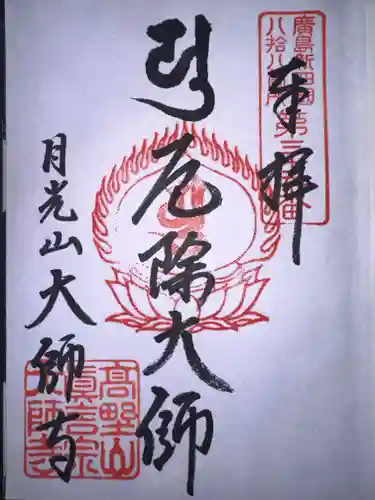 奉拝
廣島新四国
八拾八ヶ所
第三番
厄除大師
月光山大師寺
高野山
真言宗
大師寺